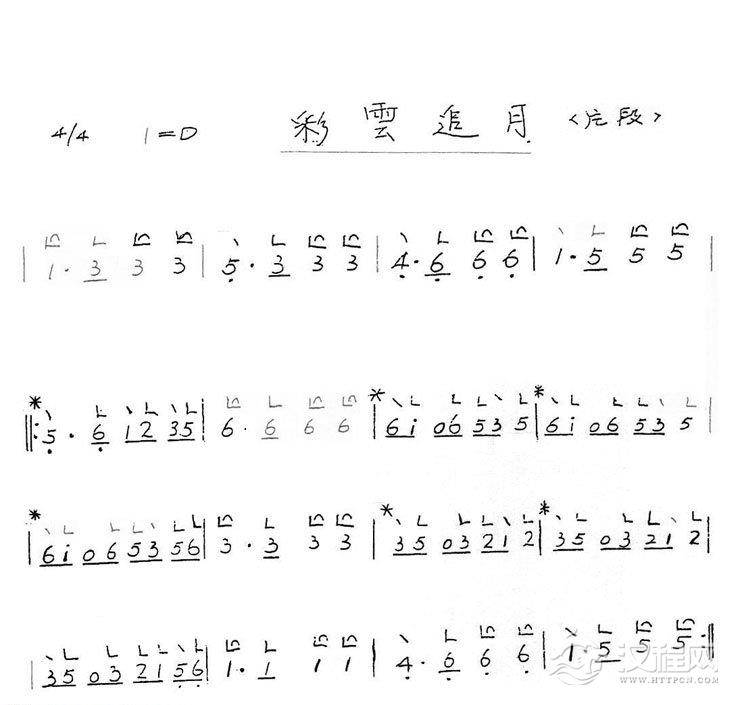 4/4 1=D 彩雲追月 <片段>
| 1· 3 3 3 | 5̣· 3 3 3 | 4̣· 6̣ 6̣ 6̣ | 1· 5 5 5 |
* * *
‖: 5̣· 6̣ 12 35 | 6· 6 6 6 | 6i 06 53 5 | 6i 06 53 5 |
* * *
| 6i 06 53 56 | 3· 3 3 3 | 35 03 21 2 | 35 03 21 2 |
| 35 03 21 5̣6̣ | 1· 1 1 1 | 4̣· 6̣ 6̣ 6̣ | 1· 5 5 5 :‖
汉程网
WWW.HTTPCN.COM